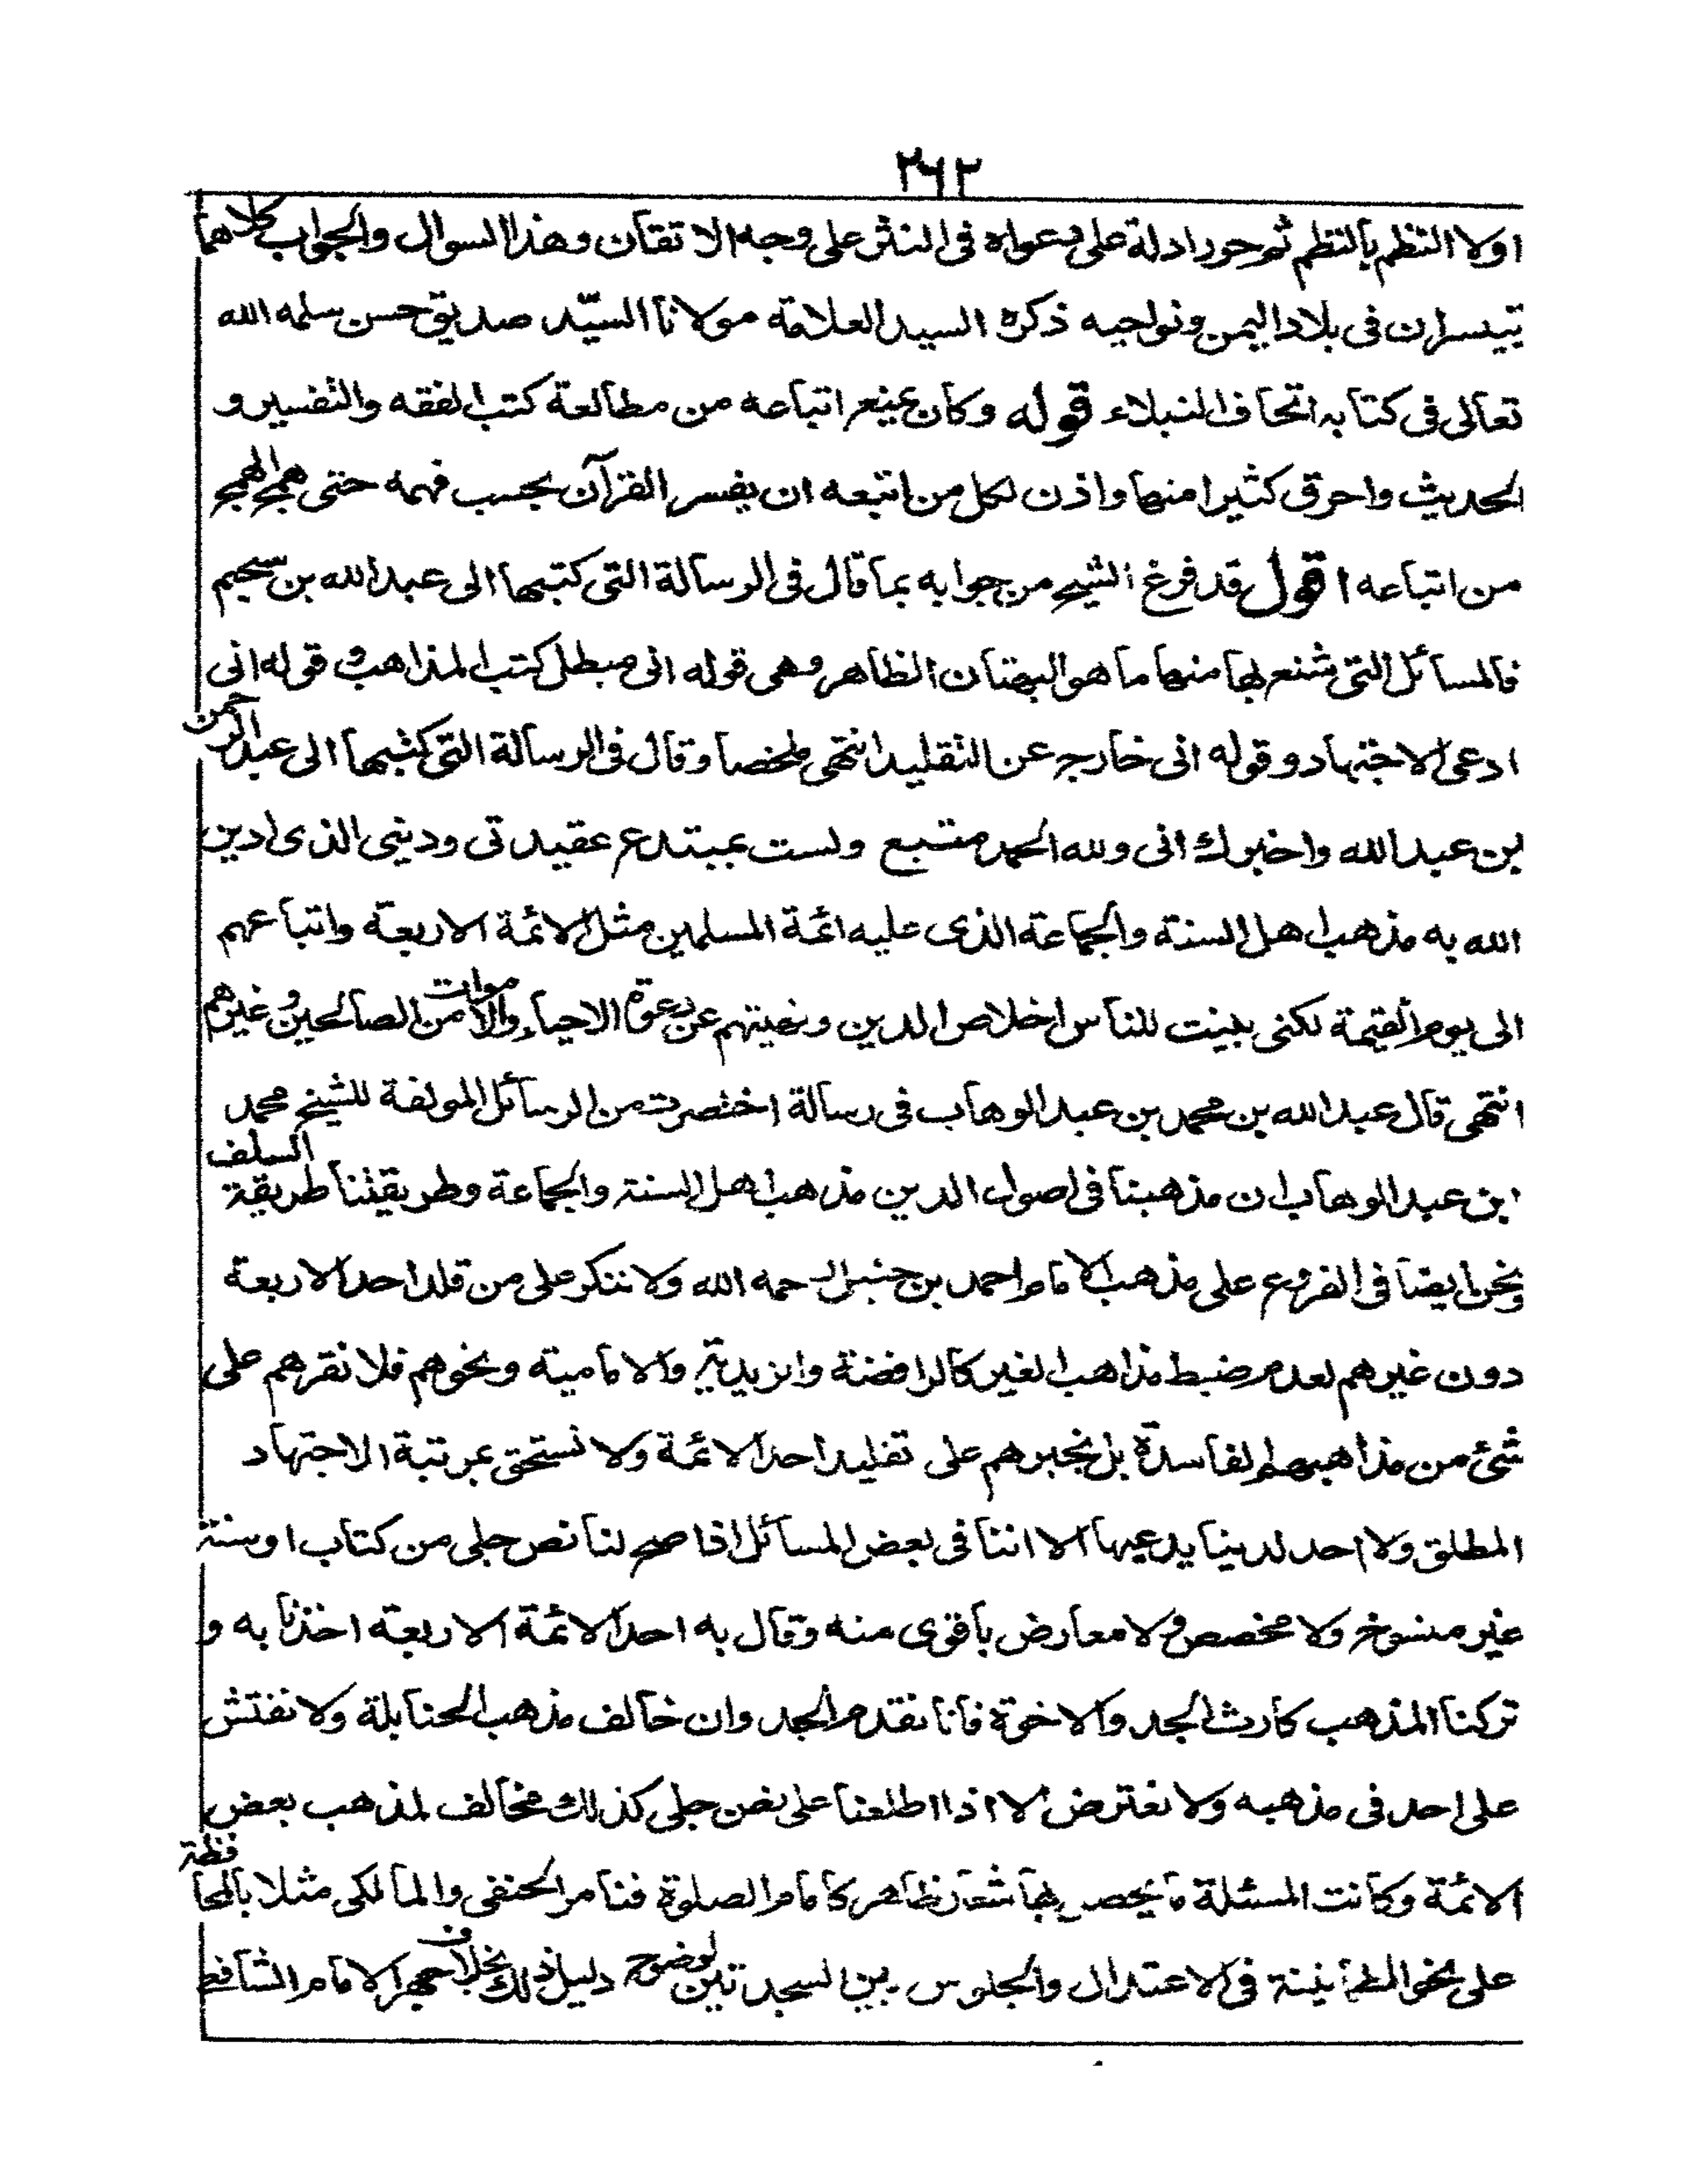 ٢٦٢
اولا النظم بالنظم ثم حرر ادلة على دعواه فى النثر على وجه الاتقان وهذا السوال والجواب كلاهما
تيسران فى بلاد اليمن ونواحيه ذكره السيد العلامة مولانا السيّد صديق حسن سلمه الله
تعالى فى كتابه اتحاف النبلاء قوله وكان يمنع اتباعه من مطالعة كتب الفقه والتفسير و
الحديث واحرق كثيرا منها واذن لكل من اتبعه ان يفسر القرآن بحسب فهمه حتى همج الهمج
من اتباعه اقول قد فرغ الشيخ من جوابه بما قال فى الرسالة التى كتبها الى عبد الله بن سحيم
فالمسائل التى شنع بها منها ما هو البهتان الظاهر وهى قوله انى مبطل كتب المذاهب وقوله انى
ادعى الاجتهاد وقوله انى خارج عن التقليد انتهى ملخصا وقال فى الرسالة التى كتبها الى عبد الرحمن
بن عبد الله واخبرك انى ولله الحمد متبع ولست بمبتدع عقيدتى ودينى الذى ادين
الله به مذهب اهل السنة والجماعة الذى عليه ائمة المسلمين مثل الائمة الاربعة واتباعهم
الى يوم القيمة لكنى بينت للناس اخلاص الدين ونهيتهم عن دعوة الاحياء والاموات من الصالحين وغيرهم
انتهى قال عبد الله بن محمد بن عبد الوهاب فى رسالة اختصرت من الرسائل المولفة للشيخ محمد
ابن عبد الوهاب ان مذهبنا فى اصول الدين مذهب اهل السنة والجماعة وطريقتنا طريقة السلف
ونحن ايضا فى الفروع على مذهب الامام احمد بن حنبل رحمه الله ولا ننكر على من قلد احد الاربعة
دون غيرهم لعدم ضبط مذاهب الغير كالرافضة والزيدية والامامية ونحوهم فلا نقرهم على
شئ من مذاهبهم الفاسدة بل نجبرهم على تقليد احد الائمة ولا نستحق بمرتبة الاجتهاد
المطلق ولا احد لدينا يدعيها الا اننا فى بعض المسائل اذا صح لنا نص جلى من كتاب او سنة
غير منسوخ ولا مخصص ولا معارض باقوى منه وقال به احد الائمة الاربعة اخذنا به و
تركنا المذهب كارث الجد والاخوة فانا نقدم الجد وان خالف مذهب الحنابلة ولا نفتش
على احد فى مذهبه ولا نعترض الا اذا اطلعنا على نص جلى كذلك مخالف لمذهب بعض
الائمة وكانت المسئلة مما يحصل بها شعار ظاهر كامام الصلوة فنامر الحنفى والمالكى مثلا بالمحافظة
على نحو الطمأنينة فى الاعتدال والجلوس بين السجدتين لوضوح دليل ذلك بخلاف جهر الامام الشافعى